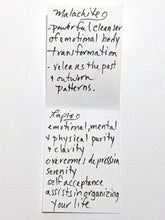 Malachite
- powerful cleanser
of emotional body
- transformation
- releases the past
& outworn
patterns.
Lapis
emotional, mental
& physical purity
& clarity
overcomes depression
serenity
self acceptance
assists in organizing
your life